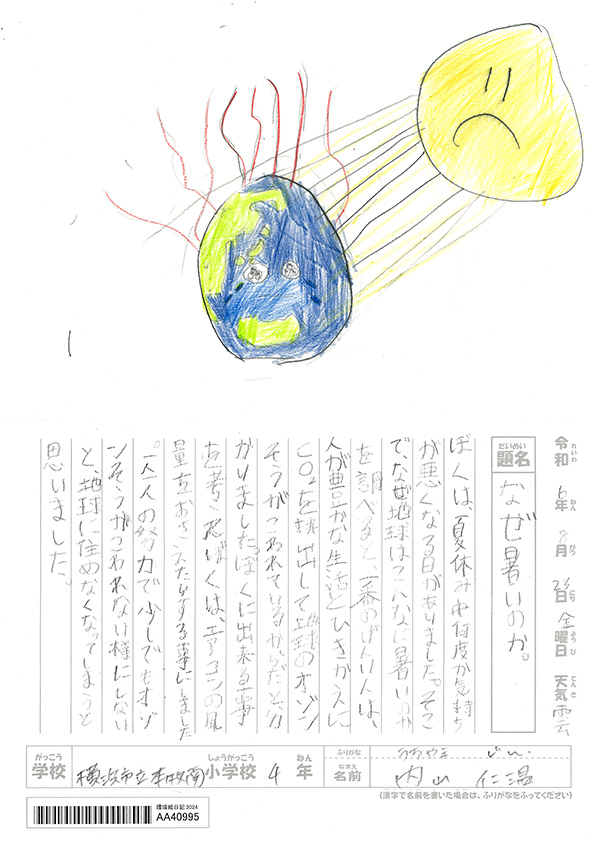 令和 6年 8月 23日 金曜日 天気 雲
題名 なぜ暑いのか。
ぼくは、夏休み中何度か気持ち
が悪くなる日がありました。そこ
でなぜ地球はこんなに暑いのか
を調べると、一番のげんいんは、
人が豊かな生活とひきかえに
CO₂を排出して地球のオゾン
そうがこわれているからだと分
かりました。ぼくに出来る事
を考え、ぼくは、エアコンの風
量をおさえたりする事にしました
。一人一人の努力で少しでもオゾ
ンそうがこわれない様にしない
と、地球に住めなくなってしまうと
思いました。
学校 横浜市立 小学校 4年
ふりがな うちやま
名前 内山 仁温
(漢字で名前を書いた場合は、ふりがなをふってください)
環境絵日記2024
AA40995